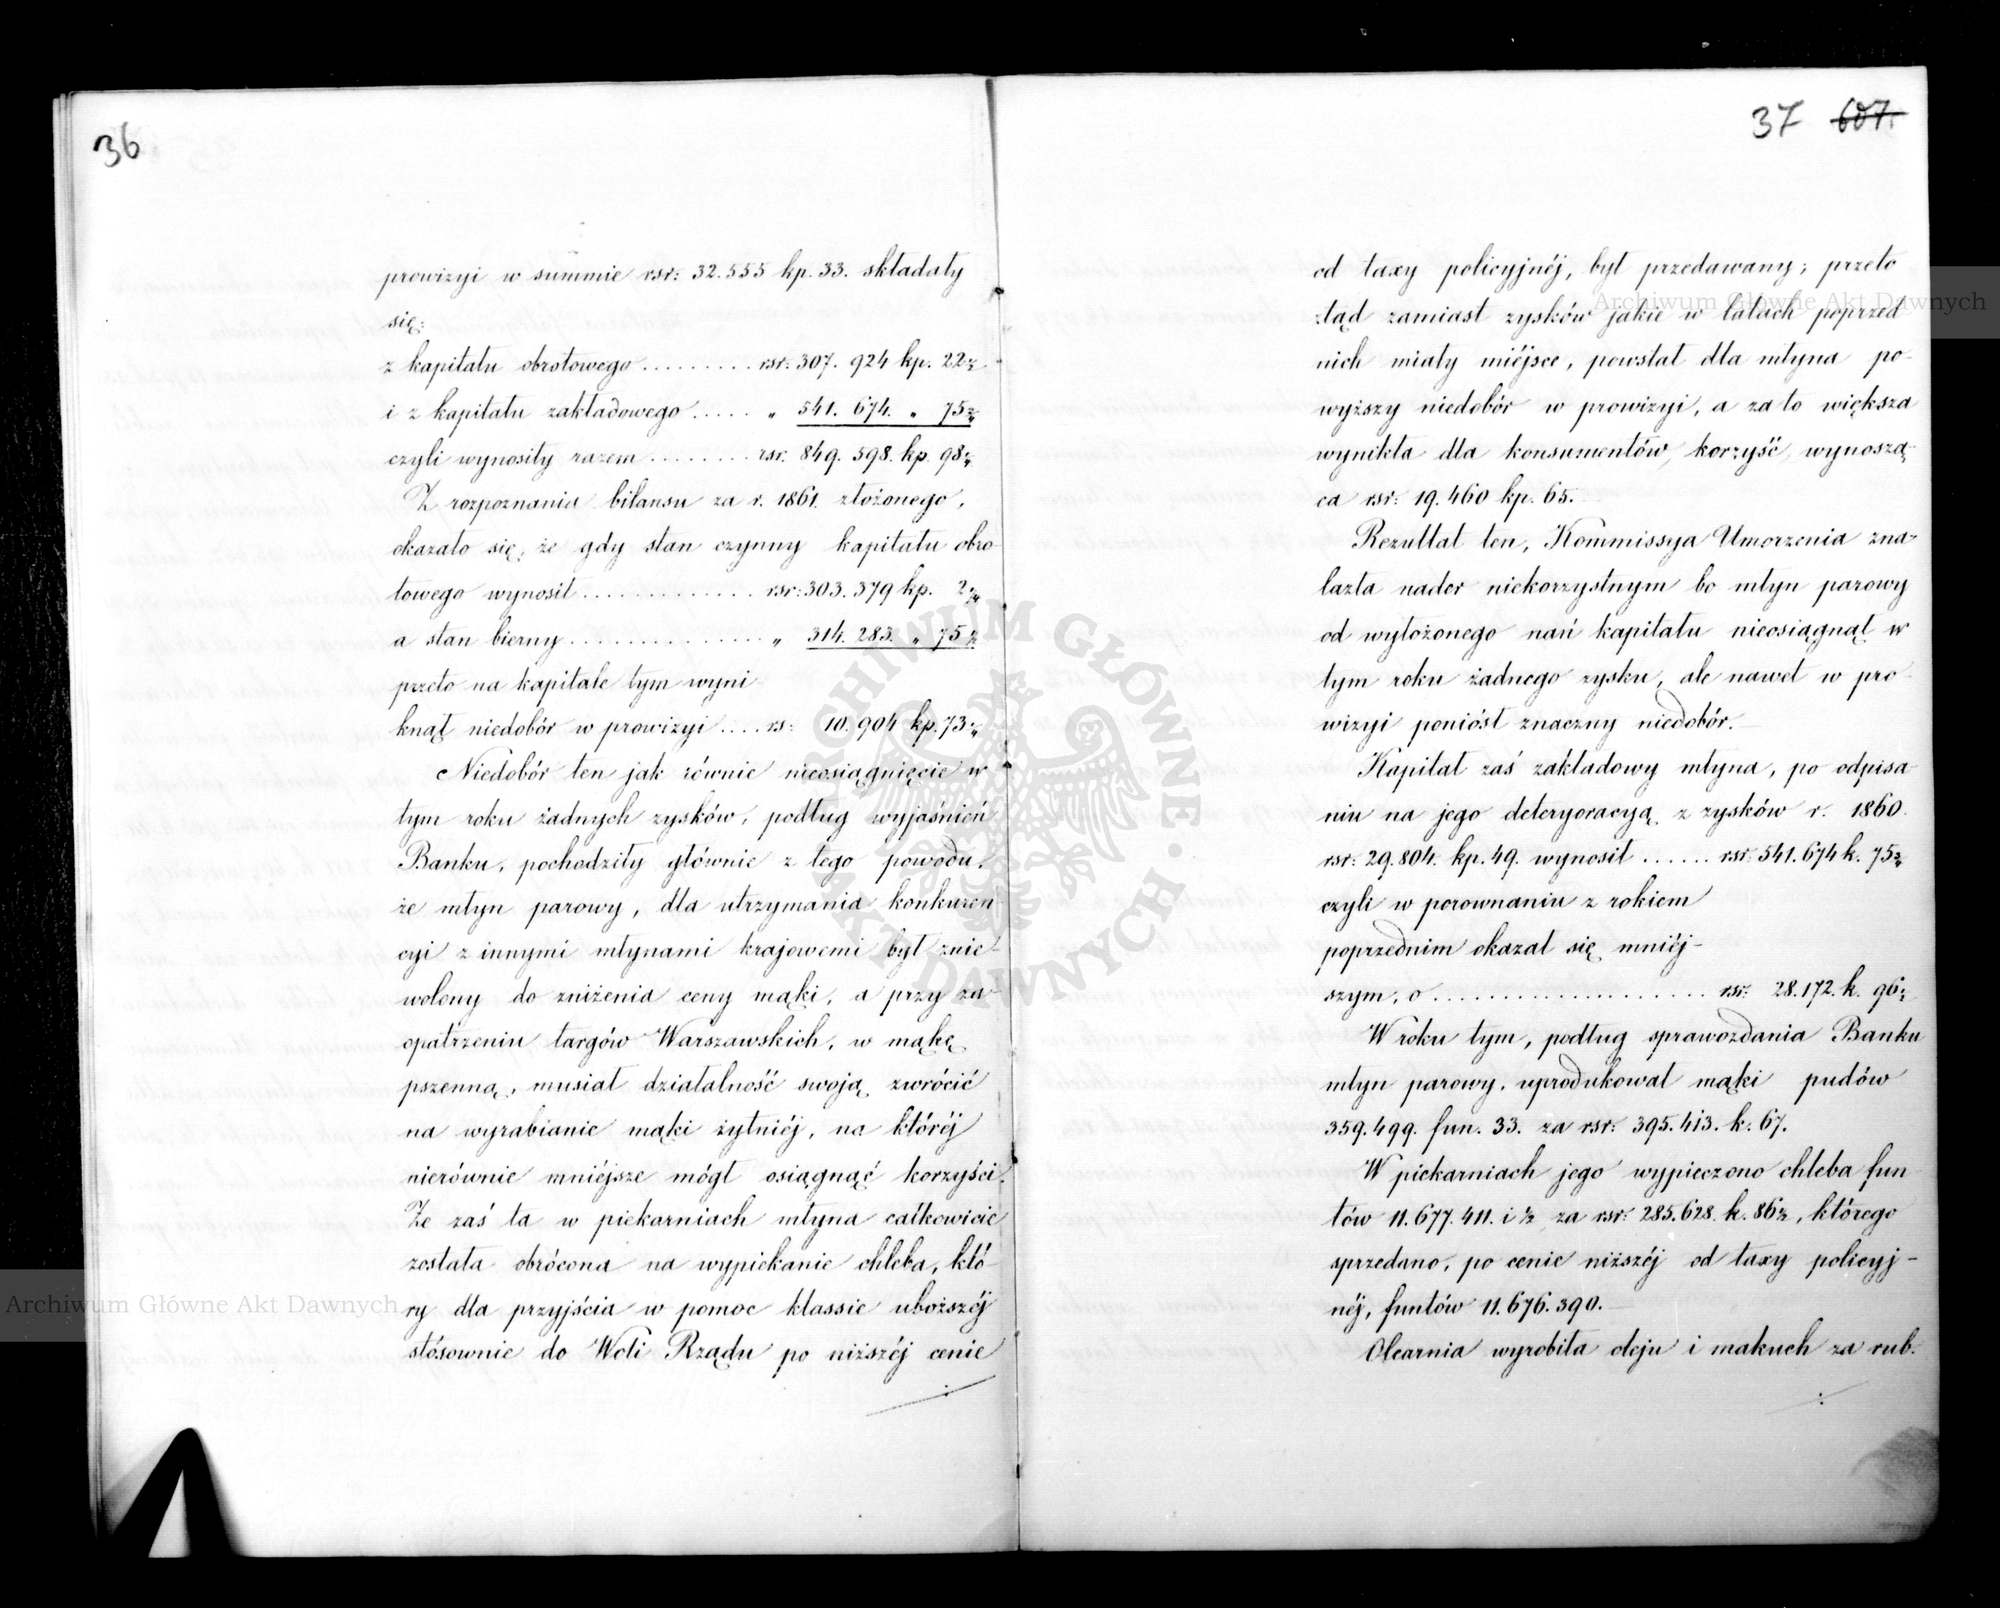 36
prowizyi w summie rsr: 32.555 kp. 33. składały
się:
z kapitału obrotowego ......... rsr: 307. 924 kp. 22½
i z kapitału zakładowego ..... „ 541. 674. „ 75½
czyli wynosiły razem ........ rsr. 849. 598. kp. 98½
Z rozpoznania bilansu za r. 1861. złożonego,
okazało się, że gdy stan czynny kapitału obro-
towego wynosił ............. rsr: 303. 379 kp. 2½
a stan bierny ............... „ 314. 283. „ 75½
przeto na kapitale tym wyni
knął niedobór w prowizyi .... rs: 10. 904 kp. 73½
Niedobór ten jak równie nieosiągnięcie w
tym roku żadnych zysków, podług wyjaśnień
Banku, pochodziły głównie z tego powodu,
że młyn parowy, dla utrzymania konkuren-
cyi z innymi młynami krajowemi był znie-
wolony do zniżenia ceny mąki, a przy za-
opatrzeniu targów Warszawskich, w mąkę
pszenną, musiał działalność swoją zwrócić
na wyrabianie mąki żytniéj, na któréj
nierównie mniéjsze mógł osiągnąć korzyści.
Że zaś ta w piekarniach młyna całkowicie
została obrócona na wypiekanie chleba, któ-
ry dla przyjścia w pomoc klassie uboższéj
stósownie do Woli Rządu po niższéj cenie
37 607.
od taxy policyjnéj, był przedawany; przeto
ztąd zamiast zysków jakie w latach poprzed
nich miały miéjsce, powstał dla młyna po-
wyższy niedobór w prowizyi, a za to większa
wynikła dla konsumentów, korzyść, wynoszą-
ca rsr: 19. 460 kp. 65.
Rezultat ten, Kommissya Umorzenia zna-
lazła nader niekorzystnym bo młyn parowy
od wyłożonego nań kapitału nieosiągnął w
tym roku żadnego zysku, ale nawet w pro-
wizyi poniósł znaczny niedobór.
Kapitał zaś zakładowy młyna, po odpisa-
niu na jego deteryoracyą z zysków r. 1860.
rsr: 29.804. kp. 49. wynosił ...... rsr. 541. 674 k. 75½
czyli w porownaniu z rokiem
poprzednim okazał się mniéj-
szym, o .................... rsr. 28.172. k. 96½
W roku tym, podług sprawozdania Banku
młyn parowy, uprodukował mąki pudów
359. 499. fun. 33. za rsr: 395. 413. k. 67.
W piekarniach jego wypieczono chleba fun-
tów 11. 677. 411. i ½ za rsr: 285. 628. k. 86½, którego
sprzedano, po cenie niższéj od taxy policyj-
néj, funtów 11. 676. 390.
Olearnia wyrobiła oleju i makuch za rub.
Archiwum Główne Akt Dawnych
Archiwum Główne Akt Dawnych
ARCHIWUM GŁÓWNE · AKT DAWNYCH ·